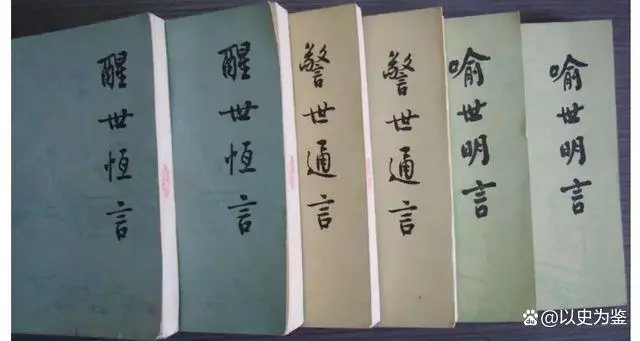 醒世恒言
醒世恒言
警世通言
警世通言
喻世明言
喻世明言
@以史为鉴